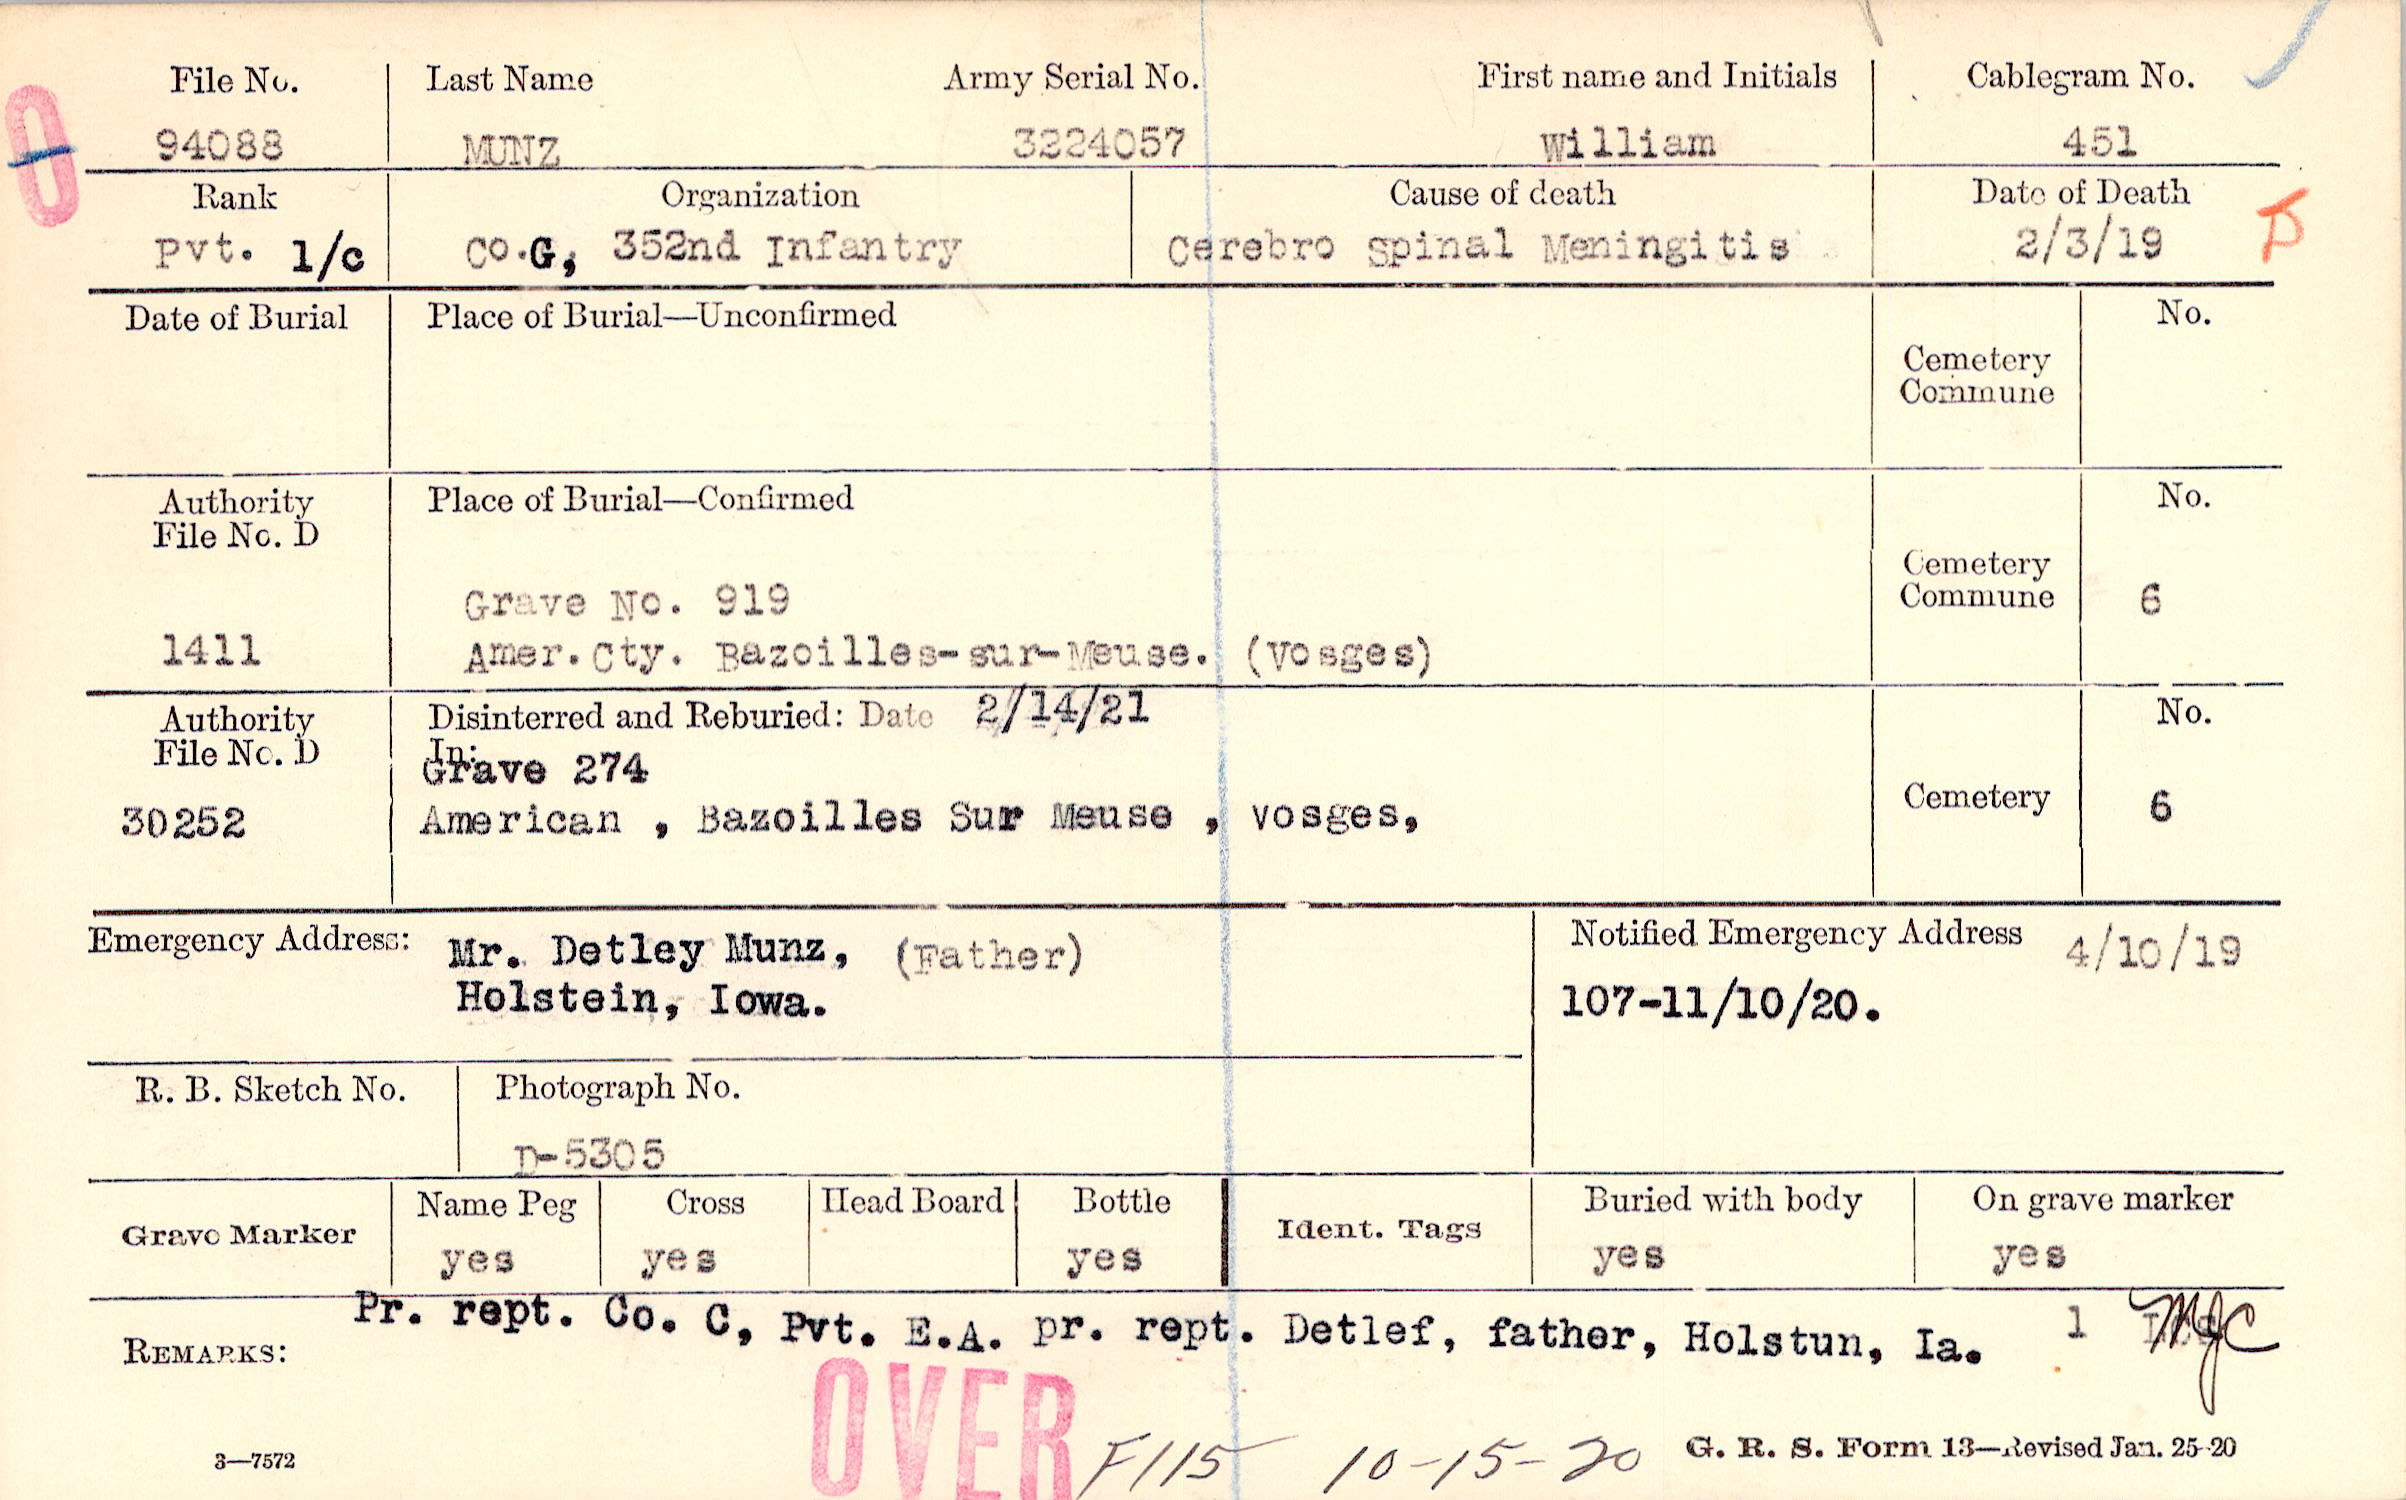 File No. Last Name Army Serial No. First name and Initials Cablegram No.
0 94088 MUNZ 3224057 William 451
Rank Organization Cause of death Date of Death
Pvt. 1/c Co.G, 352nd Infantry Cerebro Spinal Meningitis 2/3/19
Date of Burial Place of Burial—Unconfirmed No.
Cemetery
Commune
Authority Place of Burial—Confirmed No.
File No. D
Cemetery
Grave No. 919 Commune 6
1411 Amer.Cty. Bazoilles-sur-Meuse. (Vosges)
Authority Disinterred and Reburied: Date 2/14/21 No.
File No. D In:
Grave 274
30252 American , Bazoilles Sur Meuse , Vosges, Cemetery 6
Emergency Address: Mr. Detley Munz, (Father) Notified Emergency Address 4/10/19
Holstein, Iowa. 107-11/10/20.
R. B. Sketch No. Photograph No.
D-5305
Grave Marker Name Peg Cross Head Board Bottle Ident. Tags Buried with body On grave marker
yes yes yes yes yes
Pr. rept. Co. C, Pvt. E.A. pr. rept. Detlef, father, Holstun, Ia. 1 MJC
REMARKS:
OVER
F115 10-15-20
3—7572 G. R. S. Form 13—Revised Jan. 25-20